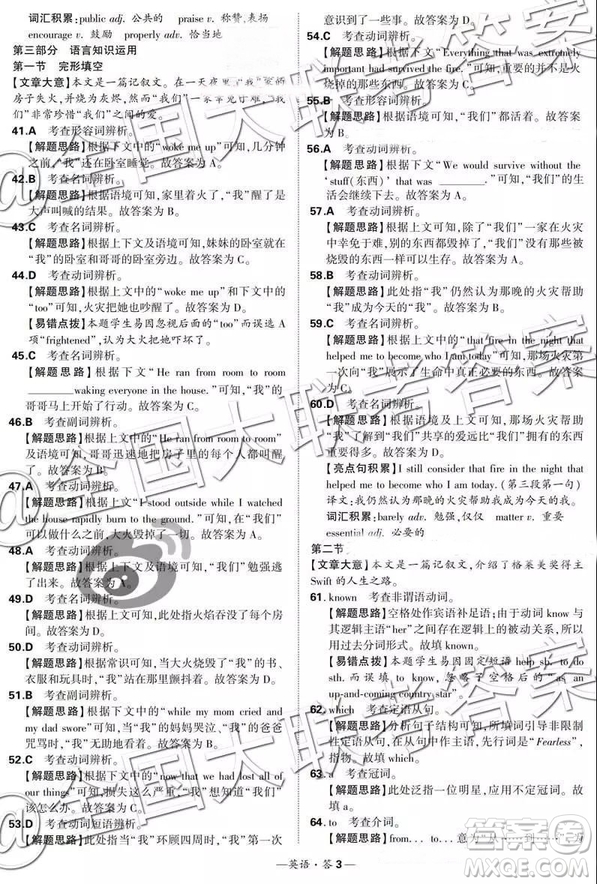 词汇积累:public adj. 公共的 praise v. 称赞,表扬
encourage v. 鼓励 properly adv. 恰当地
第三部分 语言知识运用
第一节 完形填空
【文章大意】本文是一篇记叙文。在一天夜里
房子失火,并化为灰烬,但是"我们"
非常珍惜"我们"之间的爱。
41.A 考查形容词辨析。
【解题思路】根据下文中的"woke me up"可知,几分钟
之前,"我"还在卧室睡觉。故答案为 A。
42.C 考查名词辨析。
【解题思路】根据语境可知,家里着火了,"我"醒了是
大声叫喊的结果。故答案为 C。
43.C 考查名词辨析。
【解题思路】根据上下文及语境可知,妹妹的卧室就在
"我"的卧室和哥哥的卧室旁边。故答案为 C。
44.D 考查动词辨析。
【解题思路】根据上文中的"woke me up"和下文中的
"too"可知,火灾把她也弄醒了。故答案为 D。
【易错点拨】本题学生易因忽视后面的"too"而误选 A
项"frightened",认为大火把她吓坏了。
45.C 考查名词辨析。
【解题思路】根据下文中的"He ran from room to room
waking everyone in the house."可知,"我"的
哥哥马上开始了行动。故答案为 C。
46.B 考查副词辨析。
【解题思路】根据上文中的"He ran from room to room"
及语境可知,哥哥迅速地把房子里的所有人都叫醒
了。故答案为 B。
47.A 考查动词辨析。
【解题思路】根据上文"I stood outside while I watched
the house rapidly burn to the ground."可知,在"我们"
可以做什么之前,大火烧毁了一切。故答案为 A。
48.A 考查副词辨析。
【解题思路】根据上下文及语境可知,"我们"勉强逃
了出来。故答案为 A。
49.D 考查名词辨析。
【解题思路】根据语境可知,此处指火焰吞没了每个房
间。故答案为 D。
50.B 考查动词辨析。
【解题思路】根据常识可知,当大火烧毁了"我"的书、
衣服和玩具时,"我"在那里颤抖着。故答案为 B。
51.D 考查动词辨析。
【解题思路】根据上文中的"while my mom cried and
my dad swore"可知,当"我"的妈妈哭泣、"我"的爸爸
咒骂时,"我"什么都没说。故答案为 D。
52.C 考查动词辨析。
【解题思路】根据上文中的"now that we had lost all of
our things"可知,损失这么严重,"我"想知道"我们"现
在该怎么办。故答案为 C。
53.D 考查动词短语辨析。
【解题思路】此处指当"我"环顾四周时,"我"第一次
意识到了一些事。故答案为 D。
54.C 考查动词辨析。
【解题思路】根据上文中的"Everything that was extremely
important had survived the fire."可知,
故答案为 C。
55.B 考查形容词辨析。
【解题思路】根据语境可知,
故答案为 B。
56.A 考查动词辨析。
【解题思路】根据上文中的"We would survive without the
'stuff(东西)' that was ."可知,"我们"的生
活会继续下去。故答案为 A。
57.A 考查动词辨析。
【解题思路】根据上下文可知,除了"我们"一家人在火
灾中幸免于难,别的东西都毁掉了,"我们"不需要那些
被烧毁的东西也可以生存。故答案为 A。
58.D 考查动词辨析。
【解题思路】此处指"我"仍然认为那晚的火灾帮助
"我"成为今天的"我"。故答案为 D。
59.C 考查名词辨析。
【解题思路】根据上文中的"that fire in the night that
helped me to become who I am today"可知,那场火灾第
一次向"我"展示了生命中真正重要的东西。
故答案为 C。
60.D 考查名词辨析。
【解题思路】根据上下文可知,那晚的火灾帮助"我们"
了解到了"我们"共享的爱远比"我们"拥有的东西更
重要。故答案为 D。
【亮点句积累】I still consider that fire in the night that
helped me to become who I am today.(第三段第一句)
译文:我仍然认为那晚的火灾帮助我成为今天的我。
词汇积累:barely adv. 勉强,仅仅 matter v. 重要
essential adj. 必要的
第二节
【文章大意】本文是一篇记叙文。介绍了格莱美奖得主
Swift 的人生之路。
61.known 考查非谓语动词。
【解题思路】空格处作宾语补足语;由于动词 know 与
其逻辑主语"her"之间是逻辑上的动宾关系,所以使
用过去分词形式。故填 known。
【易错点拨】本题学生易因忽视固定短语 help sb. to do
sth.,误填 know,忽略了此处的意思为"as an
up-and-coming country star"。
62.which 考查定语从句。
【解题思路】分析句子结构可知,此处引导非限制性
定语从句,且在从句中作主语,先行词是"Fearless",
故填 which。
63.a 考查冠词。
【解题思路】此处泛指一个,故用不定冠词。故
填 a。
64.to 考查介词。
【解题思路】from...to...意为"从……到……"
英语·答 3
@全国大联考答案
@全国大联考答案
答案圈
MXQE.COM